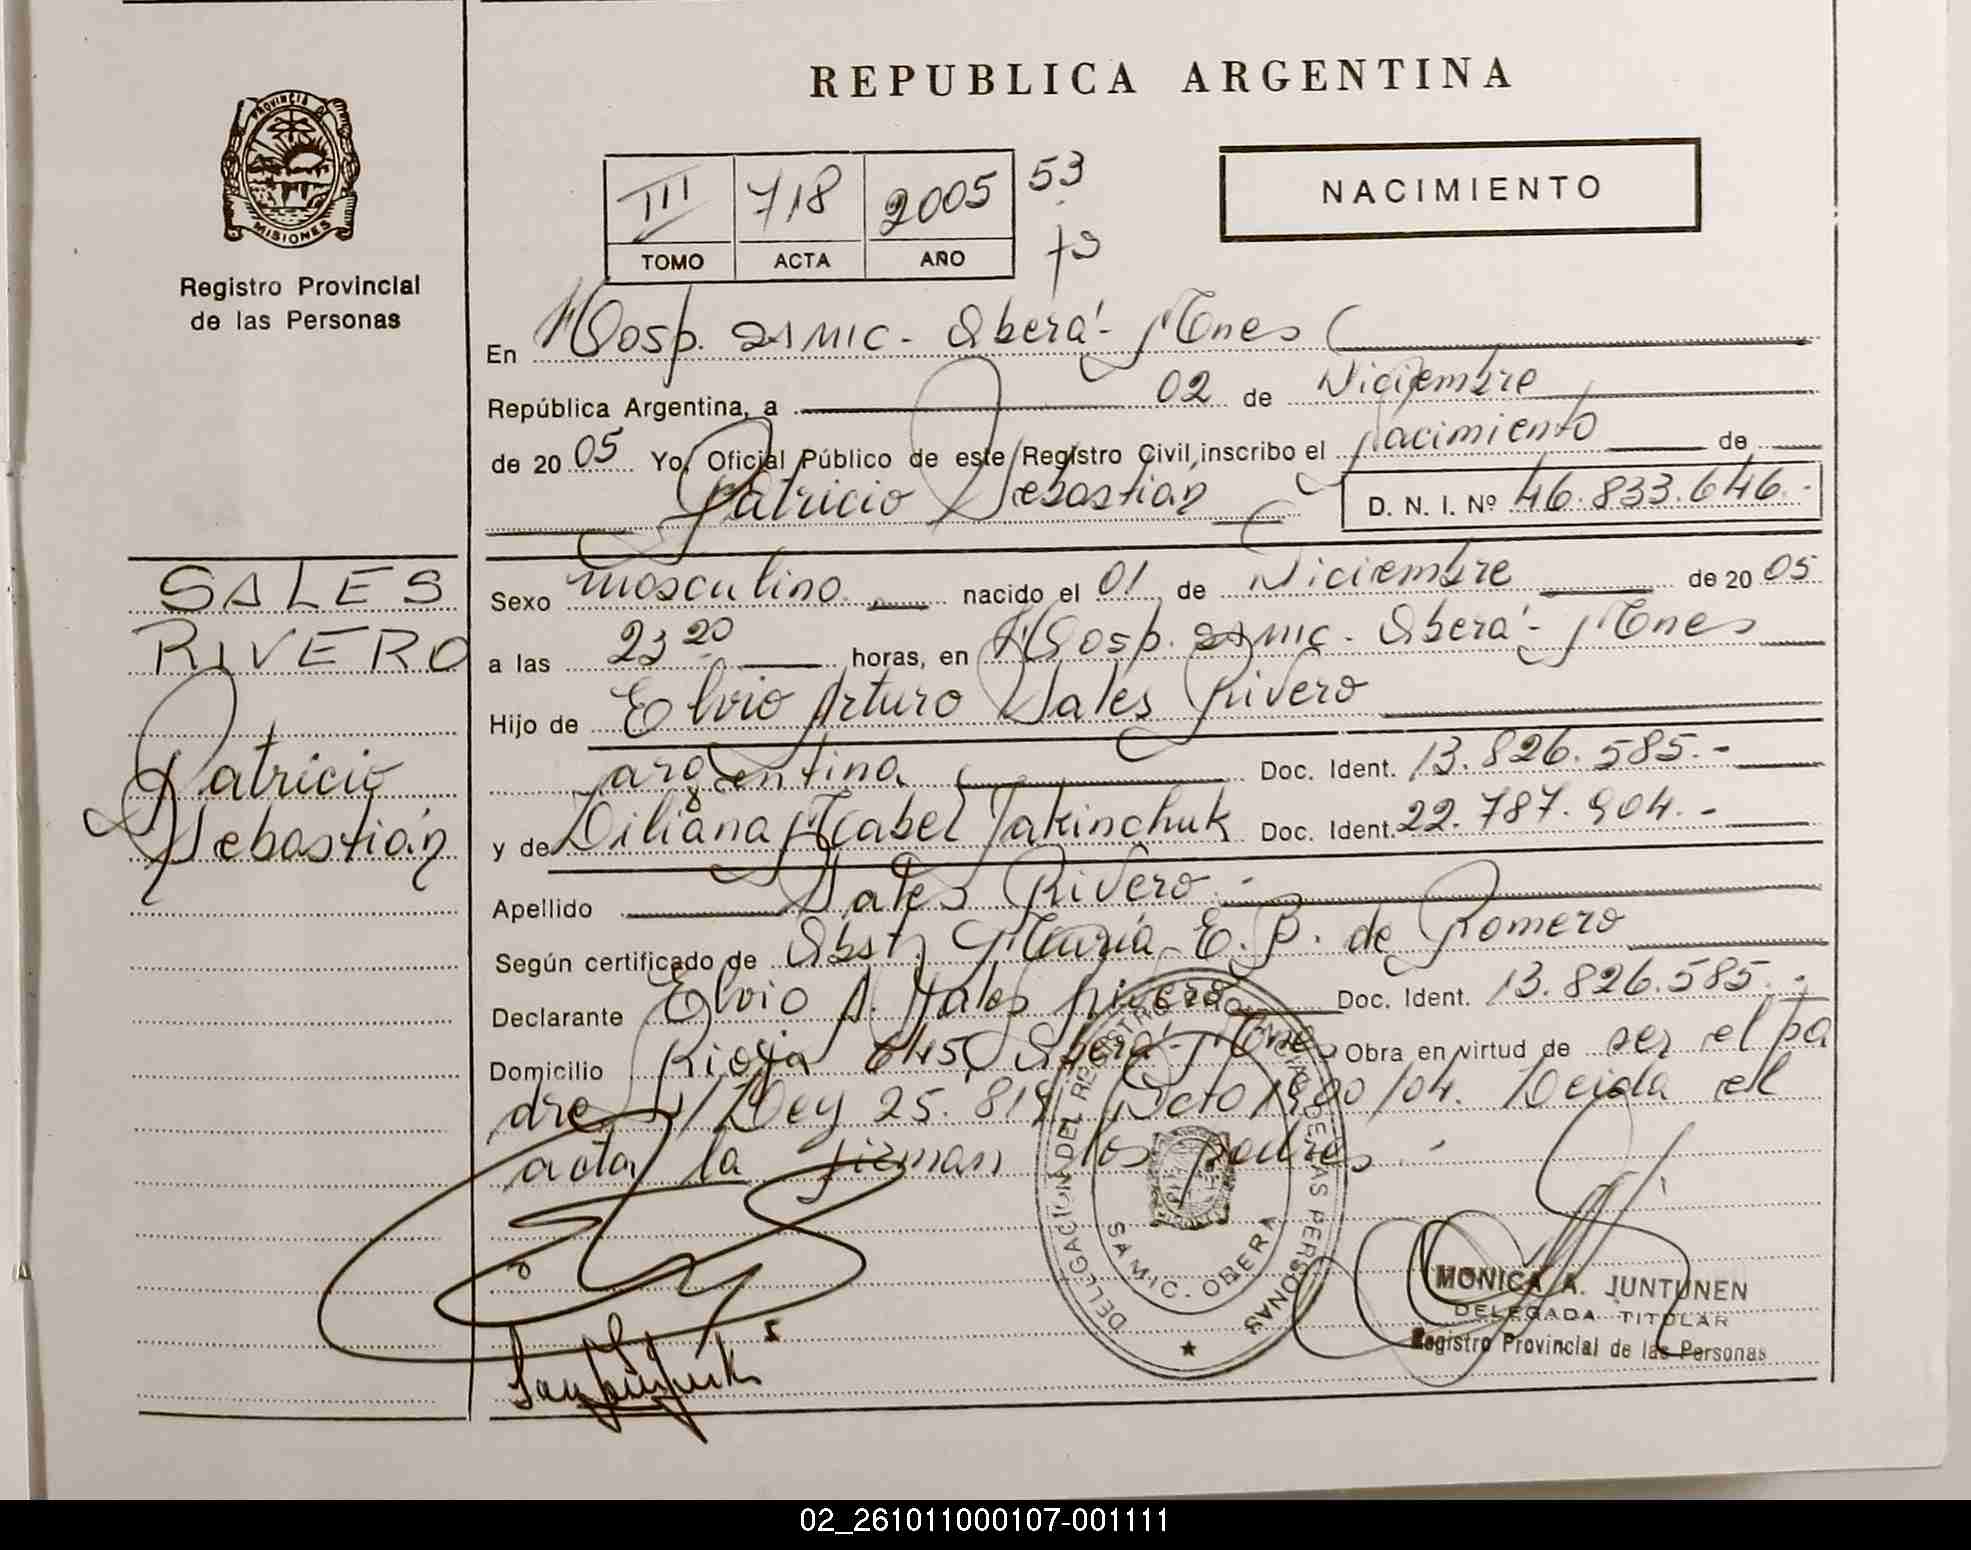 REPUBLICA ARGENTINA
PROVINCIA DE
MISIONES
Registro Provincial
de las Personas
III 718 2005 53
TOMO ACTA AÑO
NACIMIENTO
En Hosp. SAMIC - Oberá - Mnes
República Argentina, a 02 de Diciembre
de 20 05 Yo, Oficial Público de este Registro Civil, inscribo el nacimiento de
Patricio Sebastián D. N. I. Nº 46.833.646.-
SALES
RIVERO
Patricio
Sebastián
Sexo masculino nacido el 01 de Diciembre de 20 05
a las 23 20 horas, en Hosp. SAMIC - Oberá - Mnes
Hijo de Elvio Arturo Sales Rivero
argentina Doc. Ident. 13.826.585.-
y de Liliana Isabel Jakinchuk Doc. Ident. 22.787.904.-
Apellido Sales Rivero.-
Según certificado de Obst. María E. B. de Romero
Declarante Elvio A. Sales Rivero Doc. Ident. 13.826.585.-
Domicilio Rioja 645 Oberá - Mnes Obra en virtud de ser el pa
dre Ley 25.819 Dcto 1900/04. Leida el
acta la firman los padres.-
DELEGACION DEL REGISTRO PROVINCIAL DE LAS PERSONAS
SAMIC. OBERA
MONICA A. JUNTUNEN
DELEGADA TITULAR
Registro Provincial de las Personas
02_261011000107-001111